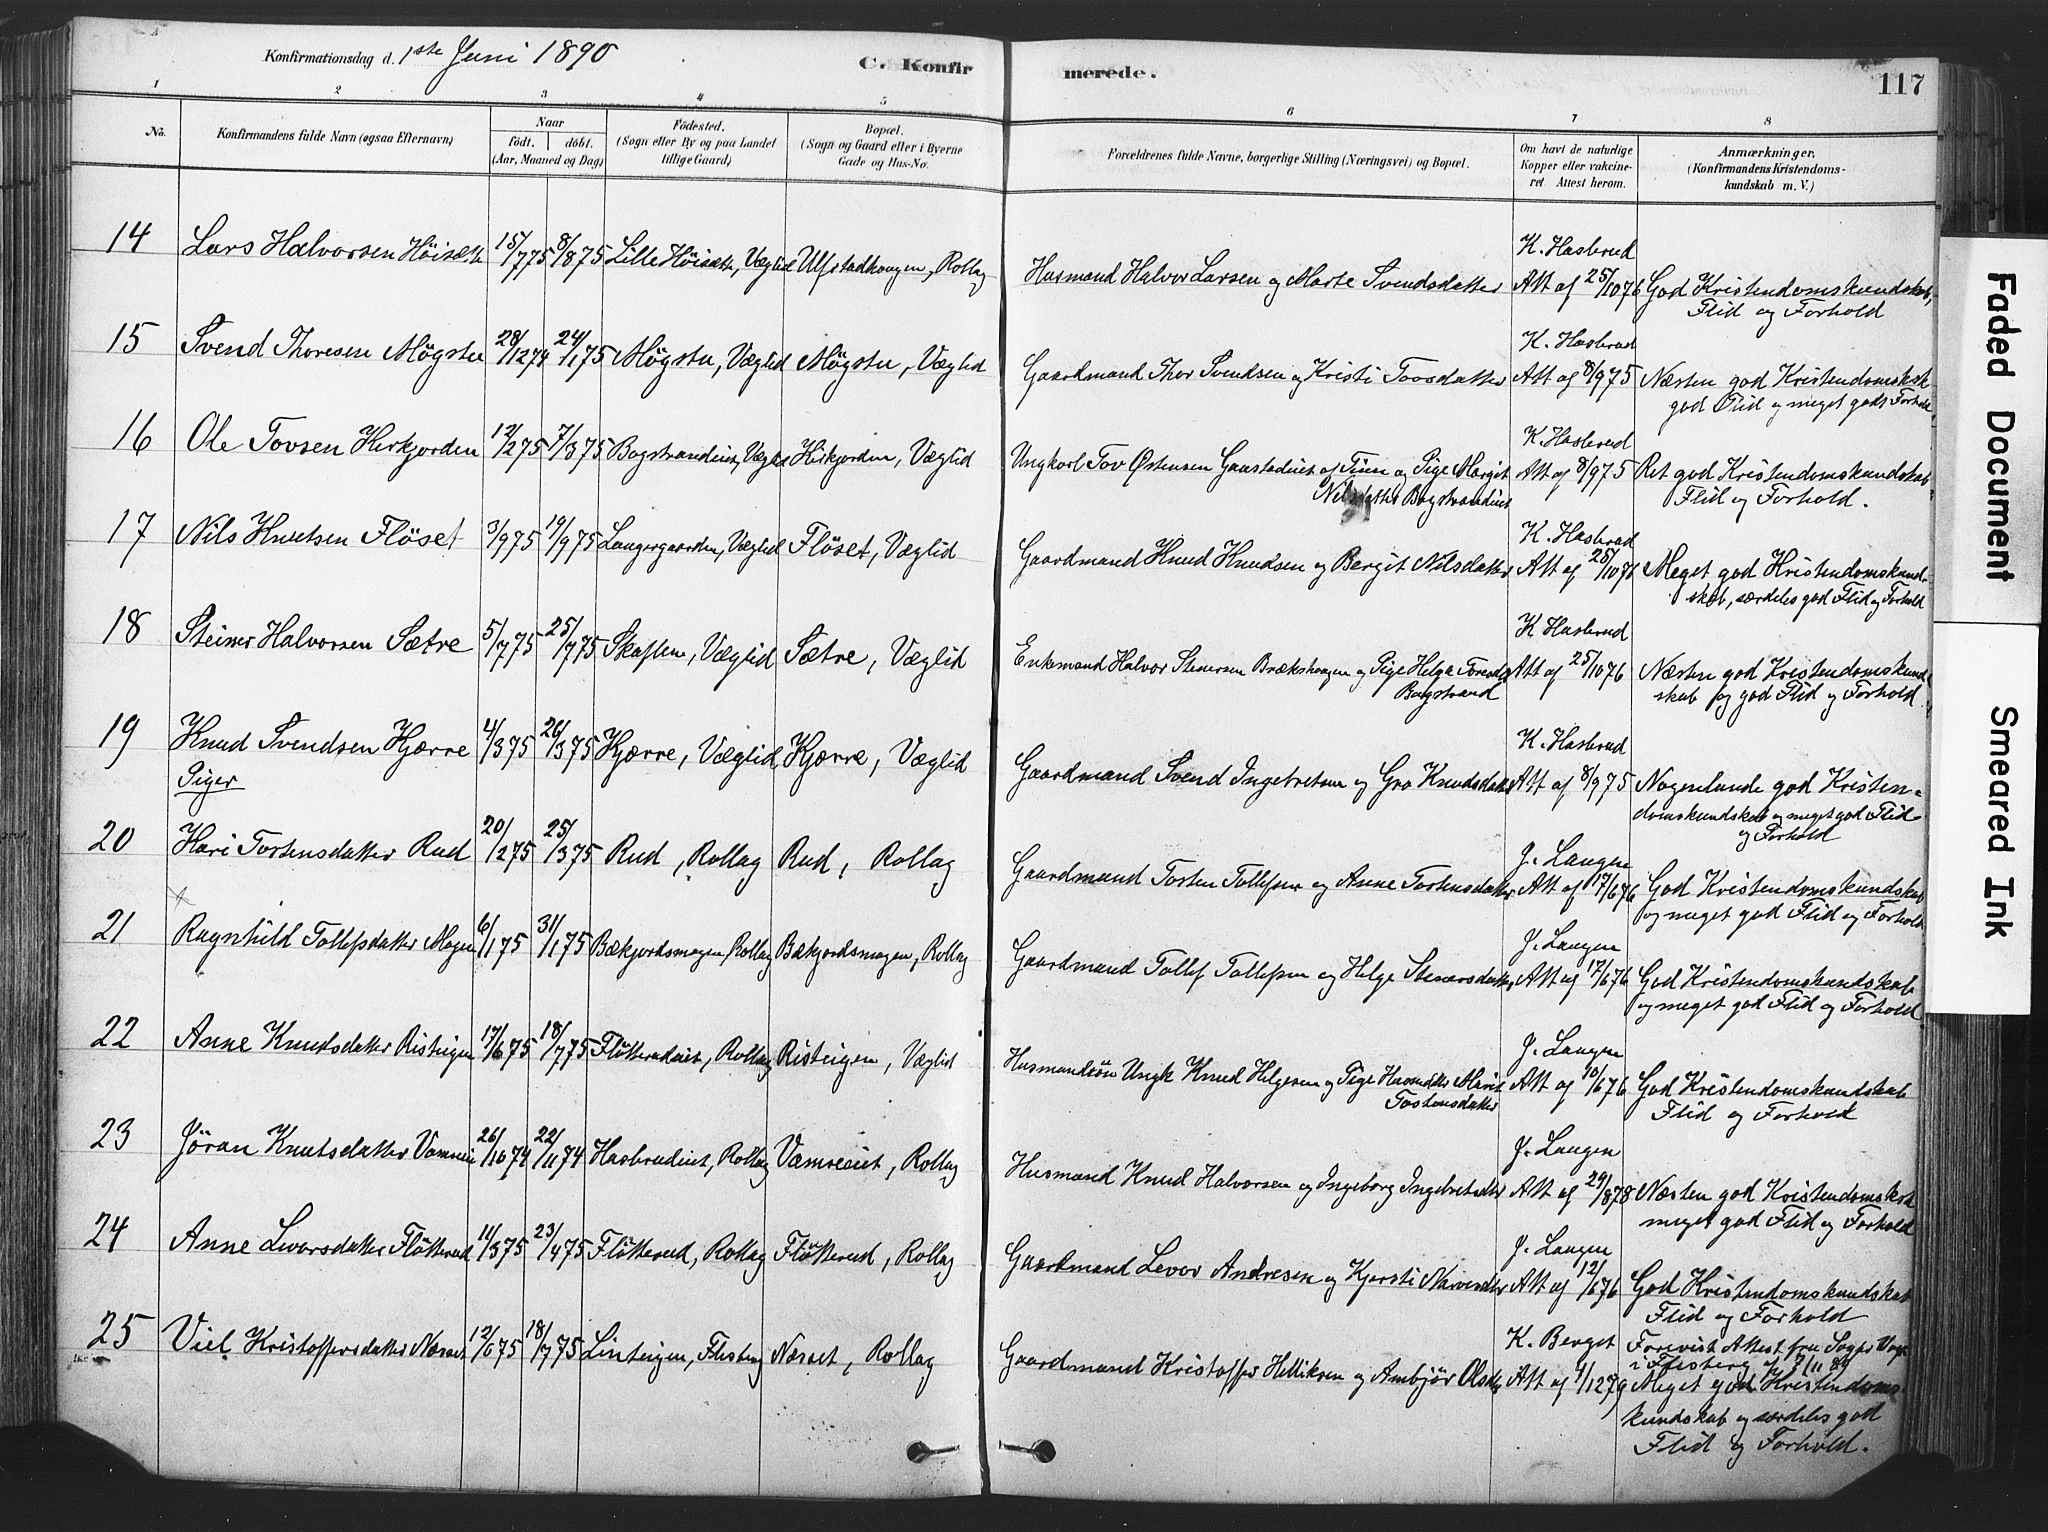 Konfirmationsdag d. 1ste Juni 1890
C. Konfirmerede.
117
1 2 3 4 5 6 7 8
No.
Konfirmandens fulde Navn (ogsaa Efternavn)
Naar
födt. döbt.
(Aar, Maaned og Dag)
Födested.
(Sogn eller By og paa Landet
tillige Gaard)
Bopæl.
(Sogn og Gaard eller i Byerne
Gade og Hus-No.
Forældrenes fulde Navne, borgerlige Stilling (Næringsvei) og Bopæl.
Om havt de naturlige
Kopper eller vakcine-
ret Attest herom.
Anmærkninger.
(Konfirmandens Kristendoms-
kundskab m. V.)
14 Lars Halvorsen Höisæt 15/7 75 8/8 75 Lille Höisæt, Væglid Ulfstadhaugen, Rollag
Husmand Halvor Larsen og Marte Svendsdatter
K. Hasbrud
Att af 25/10 76
God Kristendomskundskab,
Flid og Forhold
15 Svend Thoresen Mögstu 28/12 74 24/1 75 Mögstu, Væglid Mögstu, Væglid
Gaardmand Thor Svendsen og Kristi Toosdatter
K. Hasbrud
Att af 8/9 75
Næsten god Kristendomsk
god Flid og meget godt Forhold
16 Ole Tovsen Kirkjorden 12/2 75 7/3 75 Bogstrandeiet, Væglid Kirkjorden, Væglid
Ungkarl Tov Östensen Gaastadeiet af Tinn og Pige Margit
Nilsdatter Bogstrandeiet
K. Hasbrud
Att af 8/9 75
Ret god Kristendomskundskab
Flid og Forhold.
17 Nils Knutsen Flöset 3/9 75 19/9 75 Langergaarden, Væglid Flöset, Væglid
Gaardmand Knud Knudsen og Bergit Nilsdatter
K. Hasbrud
Att af 25/10 76
Meget god Kristendomskund-
skab, særdeles god Flid og Forhold
18 Steiner Halvorsen Sætre 5/7 75 25/7 75 Skaflen, Væglid Sætre, Væglid
Enkemand Halvor Stenersen Brækshaugen og Pige Helga Toresd
Bogstrand
K Hasbrud
Att af 25/10 76
Næsten god Kristendomskund
skab og god Flid og Forhold.
19 Knud Svendsen Kjærre 4/3 75 26/3 75 Kjærre, Væglid Kjærre, Væglid
Gaardmand Svend Ingebretsen og Gro Knudsdatter
K. Hasbrud
Att af 8/9 75
Nogenlunde god Kristen-
domskundskab og meget god Flid
og Forhold
Piger
20 Kari Torstensdatter Rud 20/2 75 25/3 75 Rud, Rollag Rud, Rollag
Gaardmand Torsten Tollefsen og Anne Torstensdatter
J. Laugen
Att af 17/6 76
God Kristendomskundskab
og meget god Flid og Forhold
21 Ragnhild Tollefsdatter Mogen 6/1 75 31/1 75 Bækjordsmogen, Rollag Bækjordsmogen, Rollag
Gaardmand Tollef Tollefsen og Helge Stenersdatter
J. Laugen
Att af 17/6 76
God Kristendomskundskab
og meget god Flid og Forhold.
22 Anne Knudsdatter Risteigen 17/6 75 18/7 75 Flötterudeiet, Rollag Risteigen, Væglid
Husmandsön Ungk Knud Helgesen og Pige Marit
Tostensdatter
J. Laugen
Att af 10/6 76
God Kristendomskundskab
Flid og Forhold
23 Jöran Knutsdatter 26/10 74 22/11 74 Hasbrudeiet, Rollag Vamreeiet, Rollag
Husmand Knud Halvorsen og Ingeborg Ingebretsdtr
J. Laugen
Att af 29/8 78
Næsten god Kristendomsk
meget god Flid og Forhold
24 Anne Levorsdatter Flötterud 11/3 75 23/4 75 Flötterud, Rollag Flötterud, Rollag
Gaardmand Levor Andresen og Kjersti Narvesdtr
J. Laugen
Att af 12/6 76
God Kristendomskundskab
Flid og Forhold
25 Viel Kristoffersdatter Næraet 12/6 75 18/7 75 Linteigen, Flesberg Næraet, Rollag
Gaardmand Kristoffer Helliksen og Ambjör Olsdtr
K. Berget
Att af 1/12 79
Forevist Attest fra Sogne
i Flesberg af 7/11 89
Meget god Kristendoms-
kundskab og særdeles god
Flid og Forhold.
Faded Document
Smeared Ink